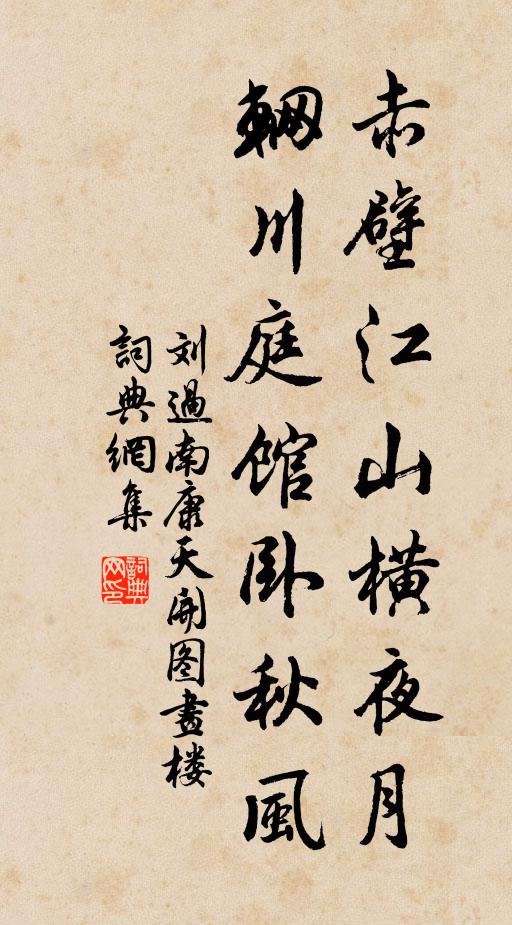 赤壁江山橫夜月
輞川庭館卧秋風
刘過南康天開图畫楼
詞典網集
詞典网印